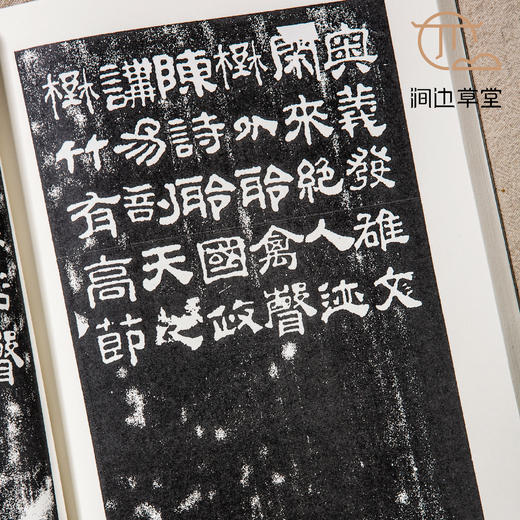 涧边草堂
奥義發雄文
閑來絕人迹
外聆禽聲
陳詩聆國政
講易剖天
竹有高節
聲